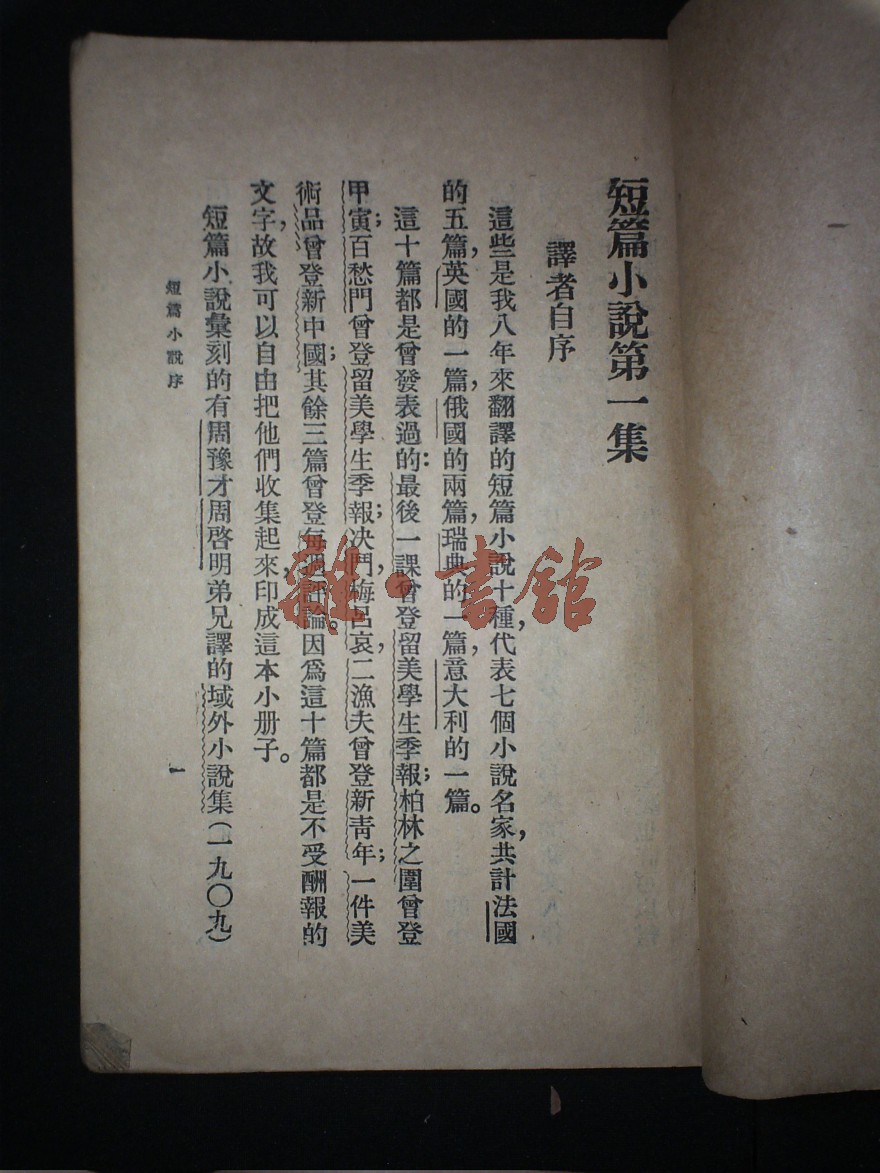 短篇小說第一集
譯者自序
這些是我八年來翻譯的短篇小說十種，代表七個小說名家，共計法國
的五篇，英國的一篇，俄國的兩篇，瑞典的一篇，意大利的一篇。
這十篇都是曾發表過的：最後一課曾登留美學生季報；柏林之圍曾登
甲寅；百愁門曾登留美學生季報；決鬥，梅呂哀，二漁夫曾登新青年；一件美
術品曾登新中國；其餘三篇曾登每週評論。因爲這十篇都是不受酬報的
文字，故我可以自由把他們收集起來，印成這本小册子。
短篇小說彙刻的有周豫才周啓明弟兄譯的域外小說集（一九〇九）
短篇小說序
一
雜·書館